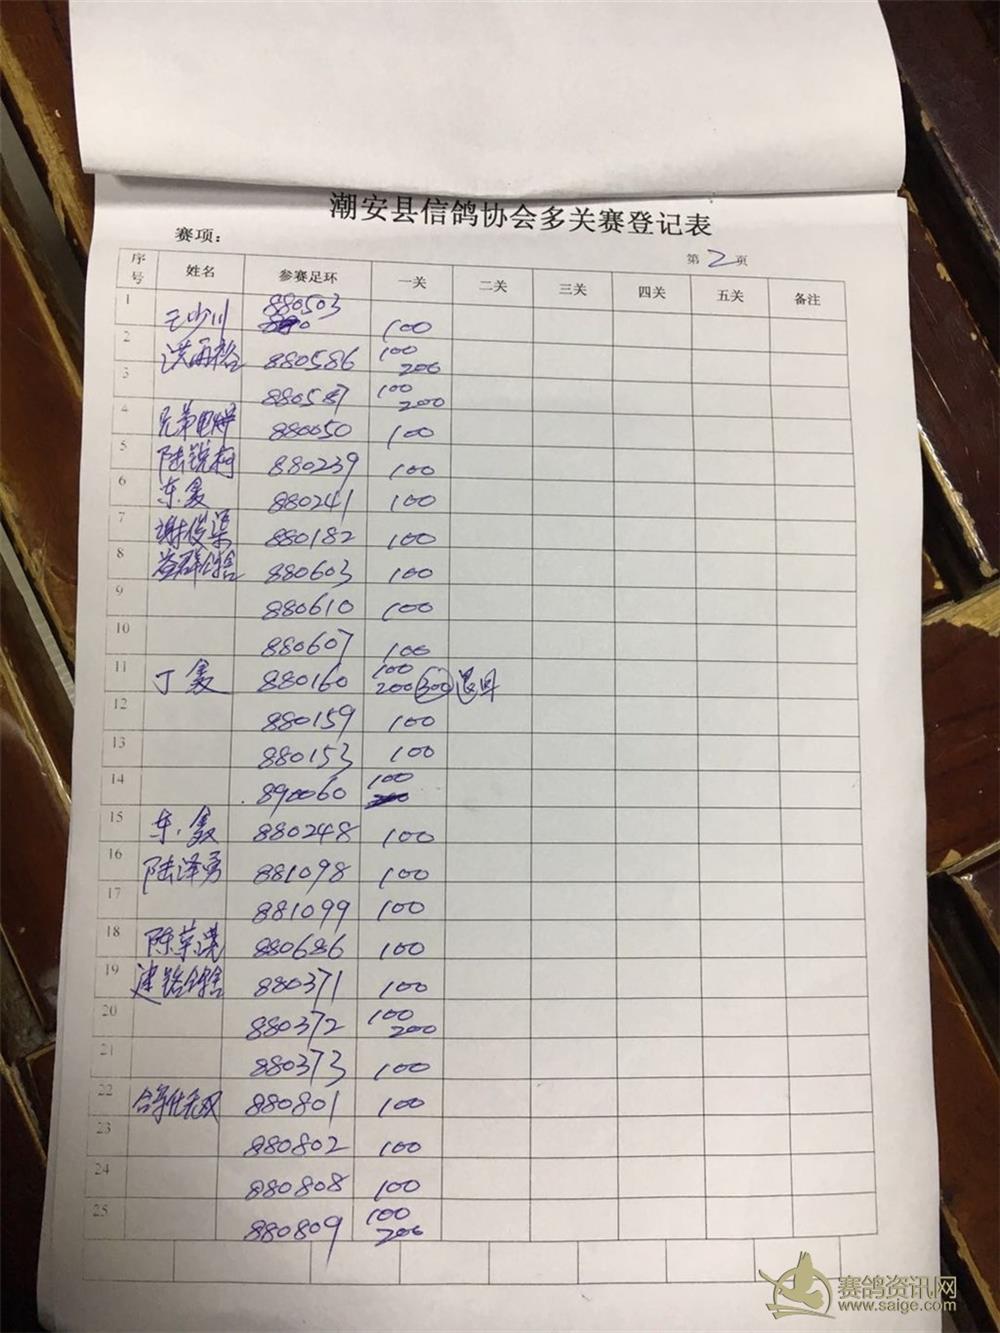 潮安县信鸽协会多关赛登记表
赛项：
第2页
序号 姓名 参赛足环 一关 二关 三关 四关 五关 备注
1 王少川 880503 100
2 洪再裕 880586 100 200
3 880587 100 200
4 兄弟电焊 880050 100
5 陆锐柯 880239 100
6 东.鑫 880241 100
7 谢俊梁 880182 100
8 益群鸽舍 880603 100
9 880610 100
10 880607 100
11 丁鑫 880160 100 200 300 退回
12 880159 100
13 880153 100
14 890060 100
15 东.鑫 880248 100
16 陆泽勇 881098 100
17 881099 100
18 陈荣 880686 100
19 建铭鸽舍 880371 100
20 880372 100 200
21 880373 100
22 无双 880801 100
23 880802 100
24 880808 100
25 880809 100 200
赛鸽资讯网
www.saige.com